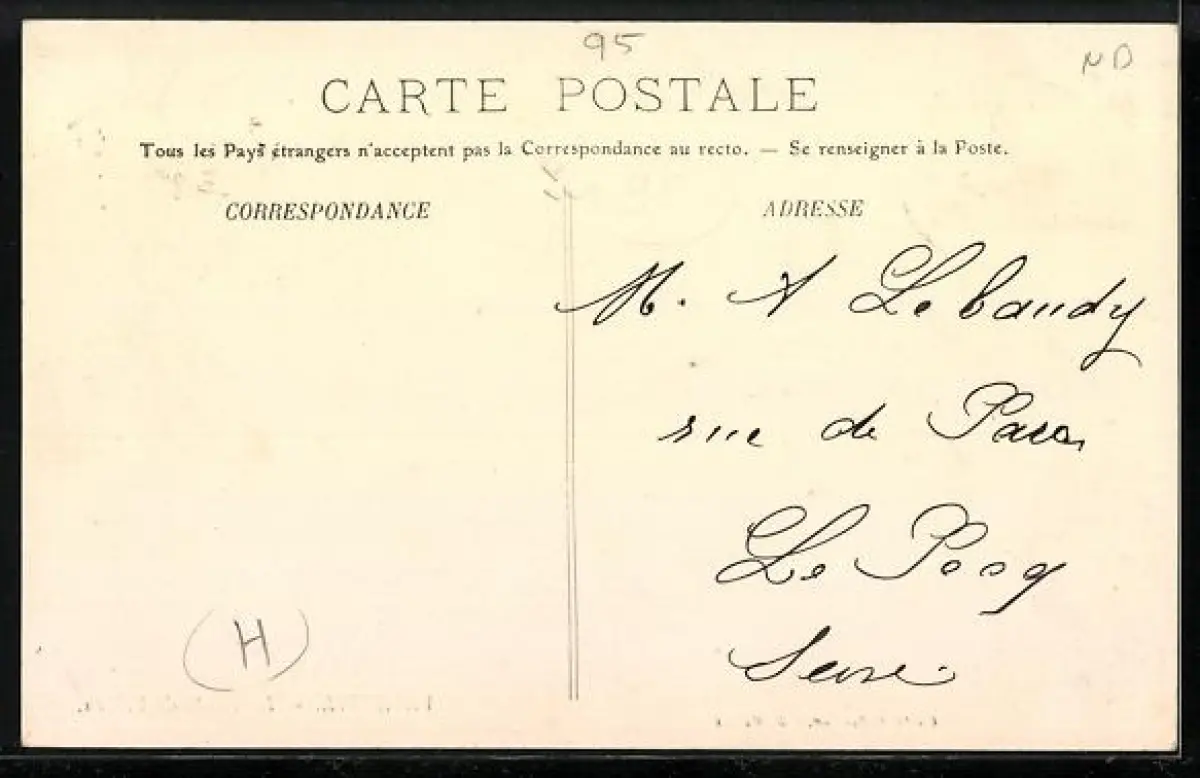 95
ND
CARTE POSTALE
Tous les Pays étrangers n'acceptent pas la Correspondance au recto. — Se renseigner à la Poste.
CORRESPONDANCE
ADRESSE
M. A Lebaudy
rue de Paris
Le Pecq
Seine
(H)